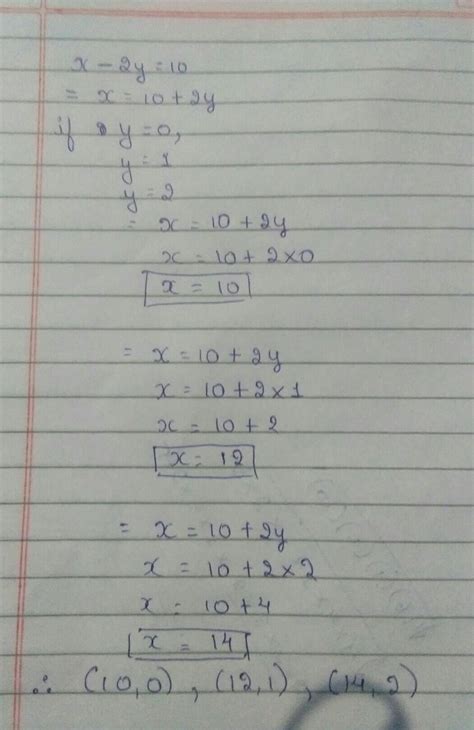 x - 2y = 10
= x = 10 + 2y
if y = 0,
y = 1
y = 2
= x = 10 + 2y
x = 10 + 2 × 0
x = 10
= x = 10 + 2y
x = 10 + 2 × 1
x = 10 + 2
x = 12
= x = 10 + 2y
x = 10 + 2 × 2
x = 10 + 4
x = 14
∴ (10,0) , (12,1) , (14,2)